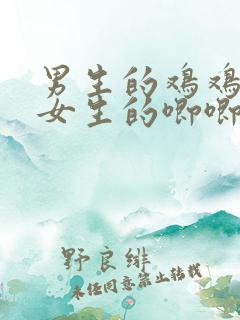 男生的鸡鸡
女生的唧唧
野良绯
未经同意禁止转载